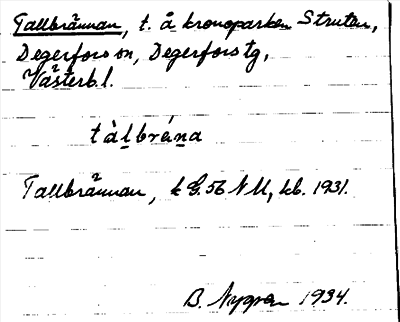 Tallbrännan, t. å kronoparken Strutan,
Degerfors sn, Degerfors tg,
Västerb.l.
tàlbrána
Tallbrännan, k G. 56 NM, kb. 1931.
B. Nygren 1934.